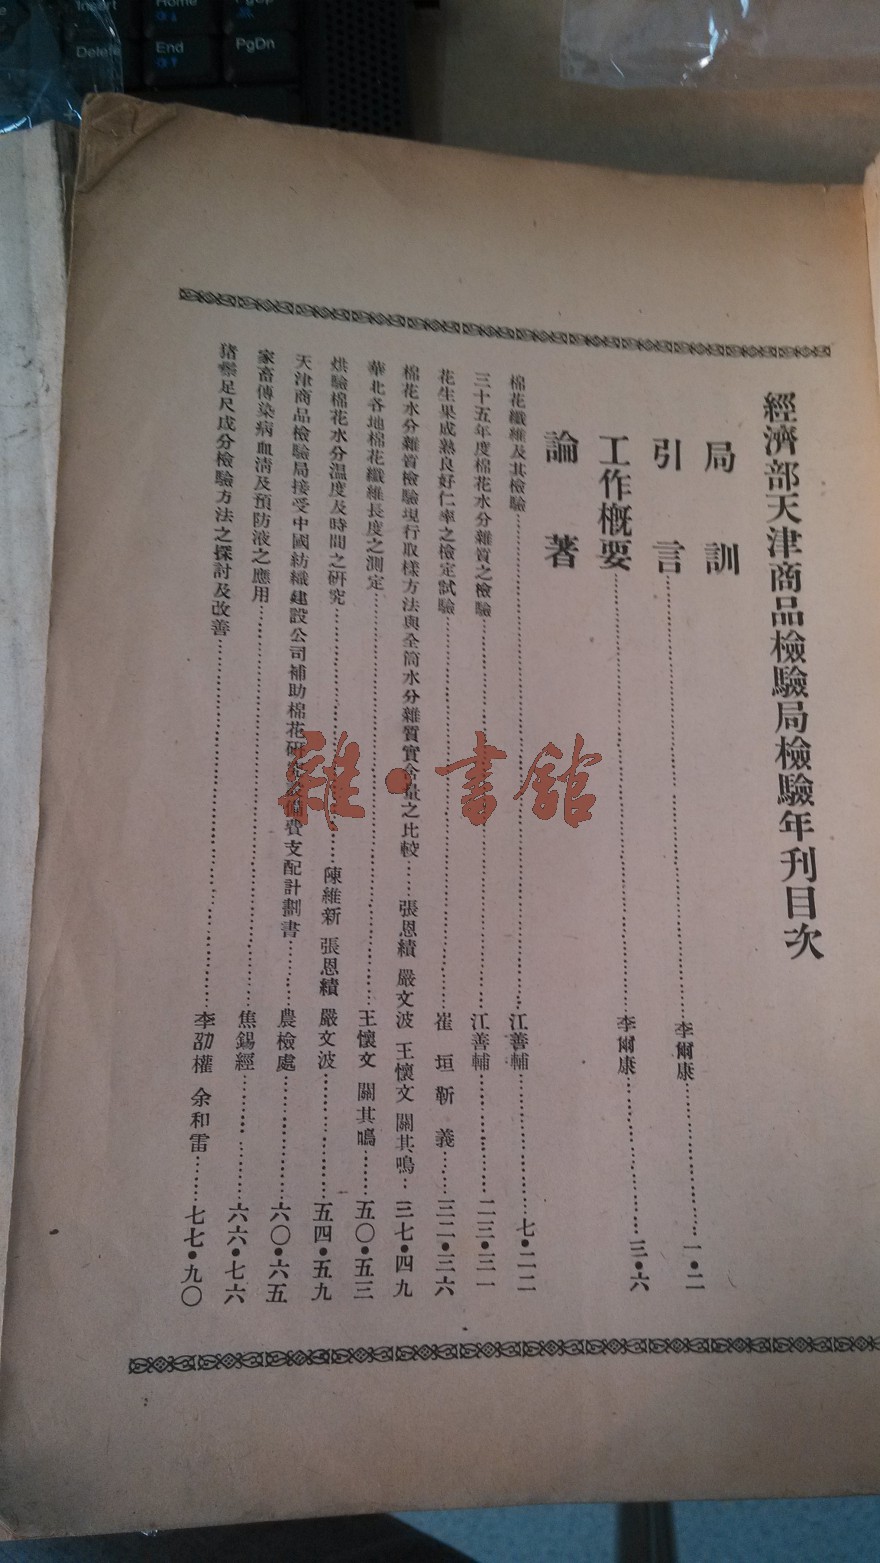 經濟部天津商品檢驗局檢驗年刊目次
局訓
引言……李爾康……一•二
工作概要……李爾康……三•六
論著
棉花纖維及其檢驗……江善輔……七•二二
三十五年度棉花水分雜質之檢驗……江善輔……二三•三一
花生果成熟良好仁率之檢定試驗……崔垣 靳義……三二•三六
棉花水分雜質檢驗現行取樣方法與全筒水分雜質實含量之比較……張恩績 嚴文波 王懷文 關其鳴…三七•四九
華北各地棉花纖維長度之測定……王懷文 關其鳴……五〇•五三
烘驗棉花水分温度及時間之研究……陳維新 張恩績 嚴文波……五四•五九
天津商品檢驗局接受中國紡織建設公司補助棉花研究設備費支配計劃書……農檢處……六〇•六五
家畜傳染病血清及預防液之應用……焦錫經……六六•七六
猪鬃足尺成分檢驗方法之探討及改善……李劭權 余和雷……七七•九〇
雜•書館
Insert
Home
PgUp
Delete
End
PgDn